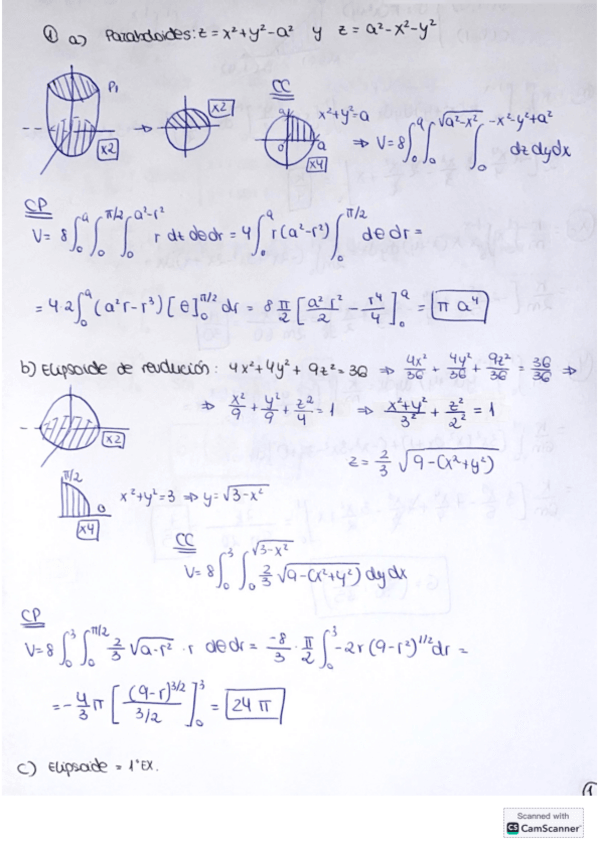 ① a) Paraboloides: z = x²+y²-a² y z = a²-x²-y²
P1
x2
x2
CC
a
x²+y²=a
0
a
x4
⇒ V = 8 ∫₀^a ∫₀^√(a²-x²) ∫₀^(-x²-y²+a²) dz dy dx
CP
V = 8 ∫₀^a ∫₀^(π/2) ∫₀^(a²-r²) r dz dθ dr = 4 ∫₀^a r(a²-r²) ∫₀^(π/2) dθ dr =
= 4·2 ∫₀^a (a²r-r³) [θ]₀^(π/2) dr = 8 π/2 [a²r²/2 - r⁴/4]₀^a = π a⁴
b) Elipsoide de revolución: 4x²+4y²+9z²=36 ⇒ 4x²/36 + 4y²/36 + 9z²/36 = 36/36 ⇒
⇒ x²/9 + y²/9 + z²/4 = 1 ⇒ (x²+y²)/3² + z²/2² = 1
x2
z = 2/3 √(9-(x²+y²))
π/2
0
x4
x²+y²=3 ⇒ y=√(3-x²)
CC
V = 8 ∫₀^3 ∫₀^√(3-x²) 2/3 √(9-(x²+y²)) dy dx
CP
V = 8 ∫₀^3 ∫₀^(π/2) 2/3 √(a-r²) · r dθ dr = -8/3 · π/2 ∫₀^3 -2r(9-r²)^(1/2) dr =
= -4/3 π [(9-r)^(3/2) / (3/2)]₀^3 = 24 π
c) Elipsoide = 1°EX.
①
Scanned with
CS CamScanner